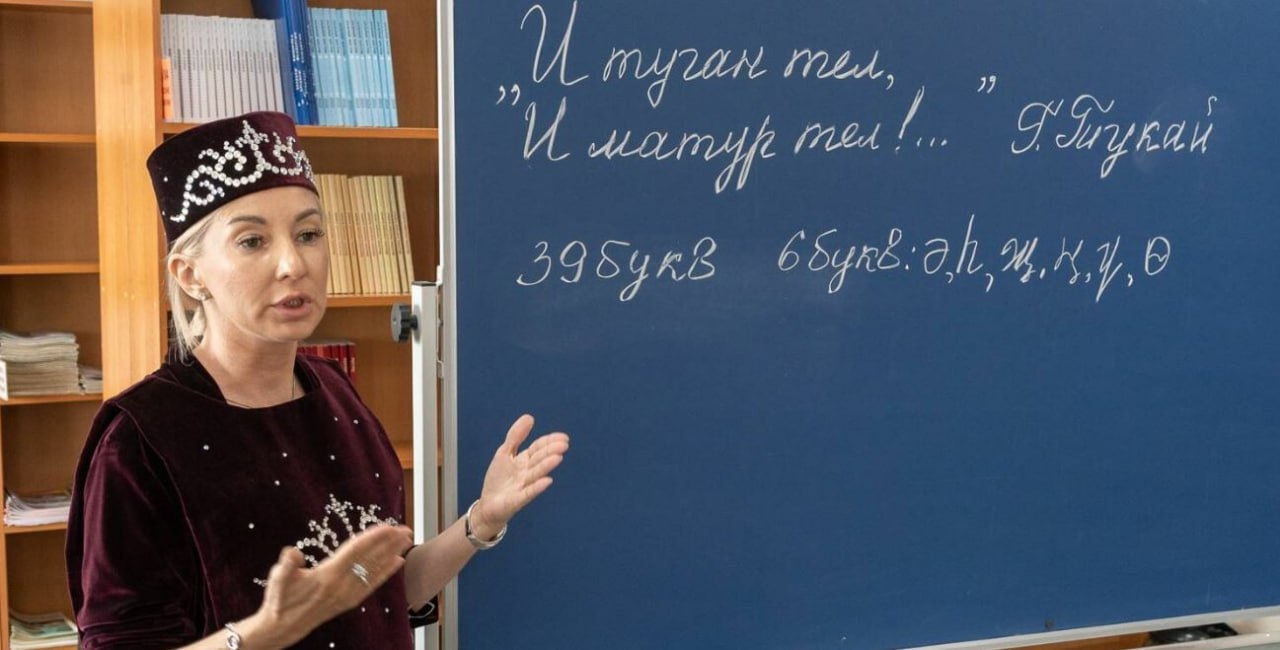 „И туган тел,
И матур тел!...” Г. Тукай
39 букв 6 букв: ә, һ, җ, ң, ү, ө